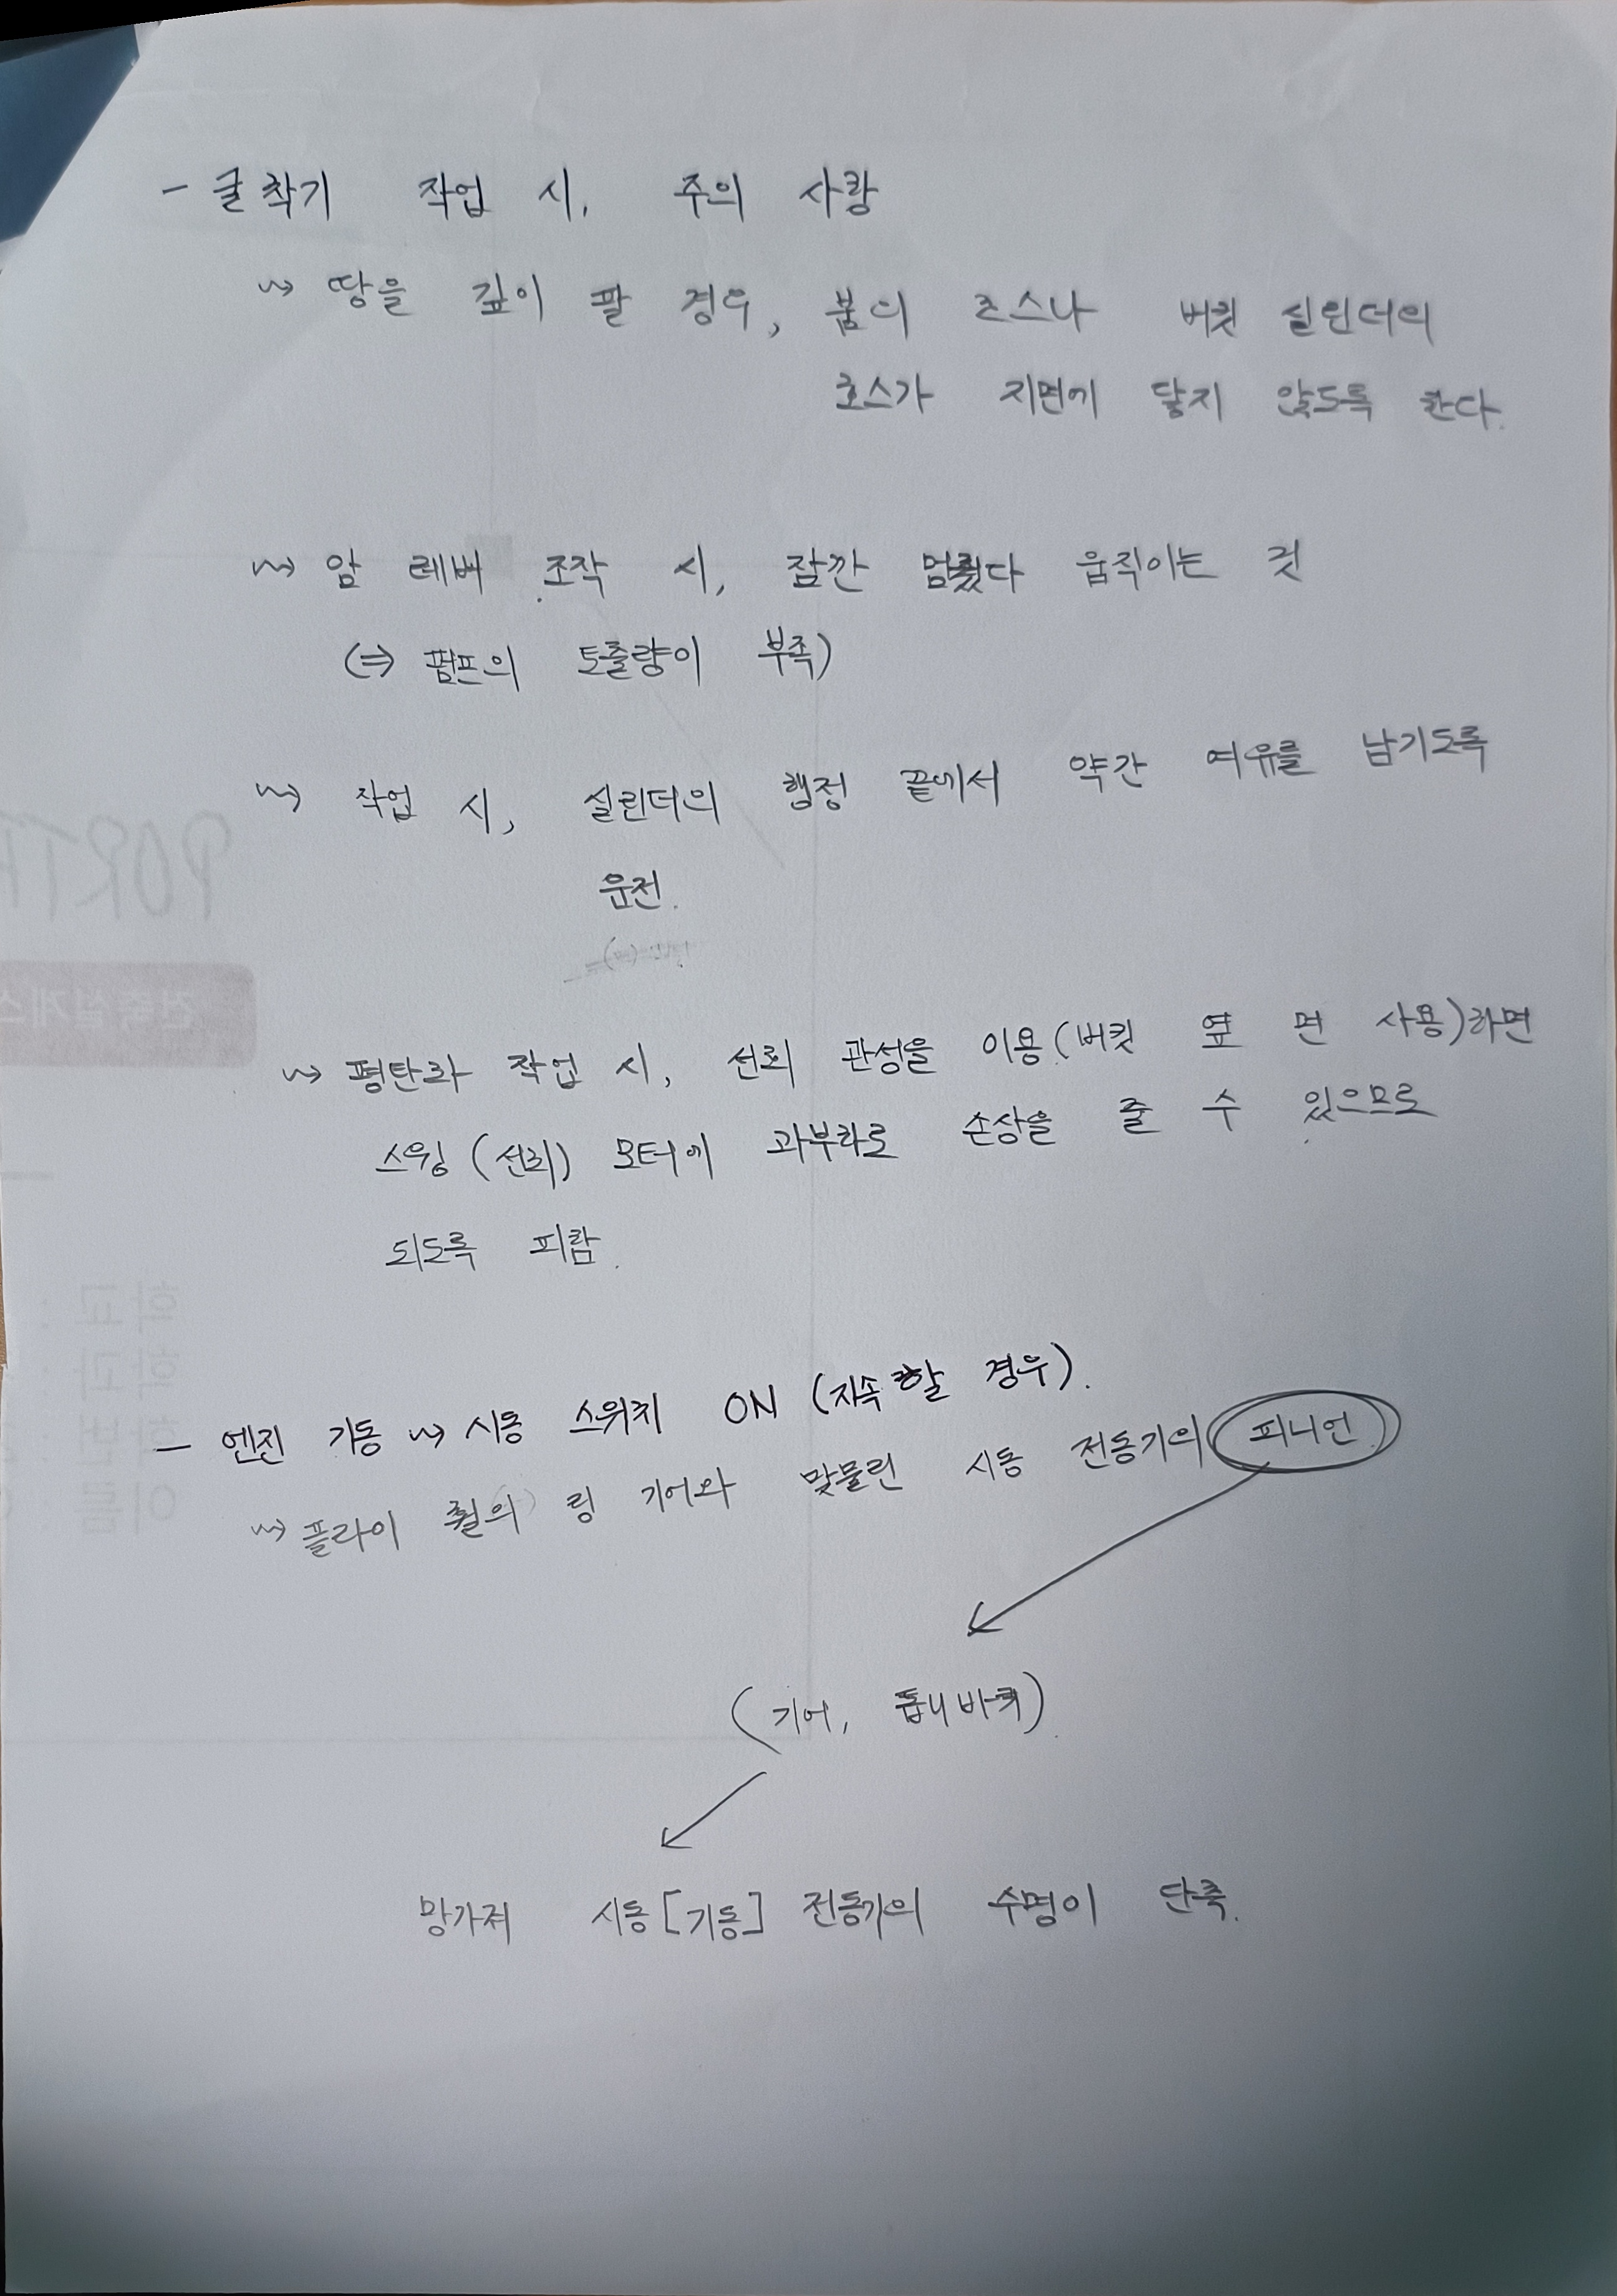 - 굴착기 작업 시, 주의 사항
↝ 땅을 깊이 팔 경우, 붐의 호스나 버킷 실린더의
호스가 지면에 닿지 않도록 한다.
↝ 암 레버 조작 시, 잠깐 멈췄다 움직이는 것
(⇒ 펌프의 토출량이 부족)
↝ 작업 시, 실린더의 행정 끝에서 약간 여유를 남기도록
운전.
↝ 평탄화 작업 시, 선회 관성을 이용(버킷 옆 면 사용)하면
스윙(선회) 모터에 과부하로 손상을 줄 수 있으므로
되도록 피함.
- 엔진 기동 ↝ 시동 스위치 ON (지속할 경우).
↝ 플라이 휠의 링 기어와 맞물린 시동 전동기의 피니언
(기어, 톱니바퀴)
망가져 시동[기동] 전동기의 수명이 단축.
PORTF
건축설계스
학교 :
학과 :
학번 :
이름 :